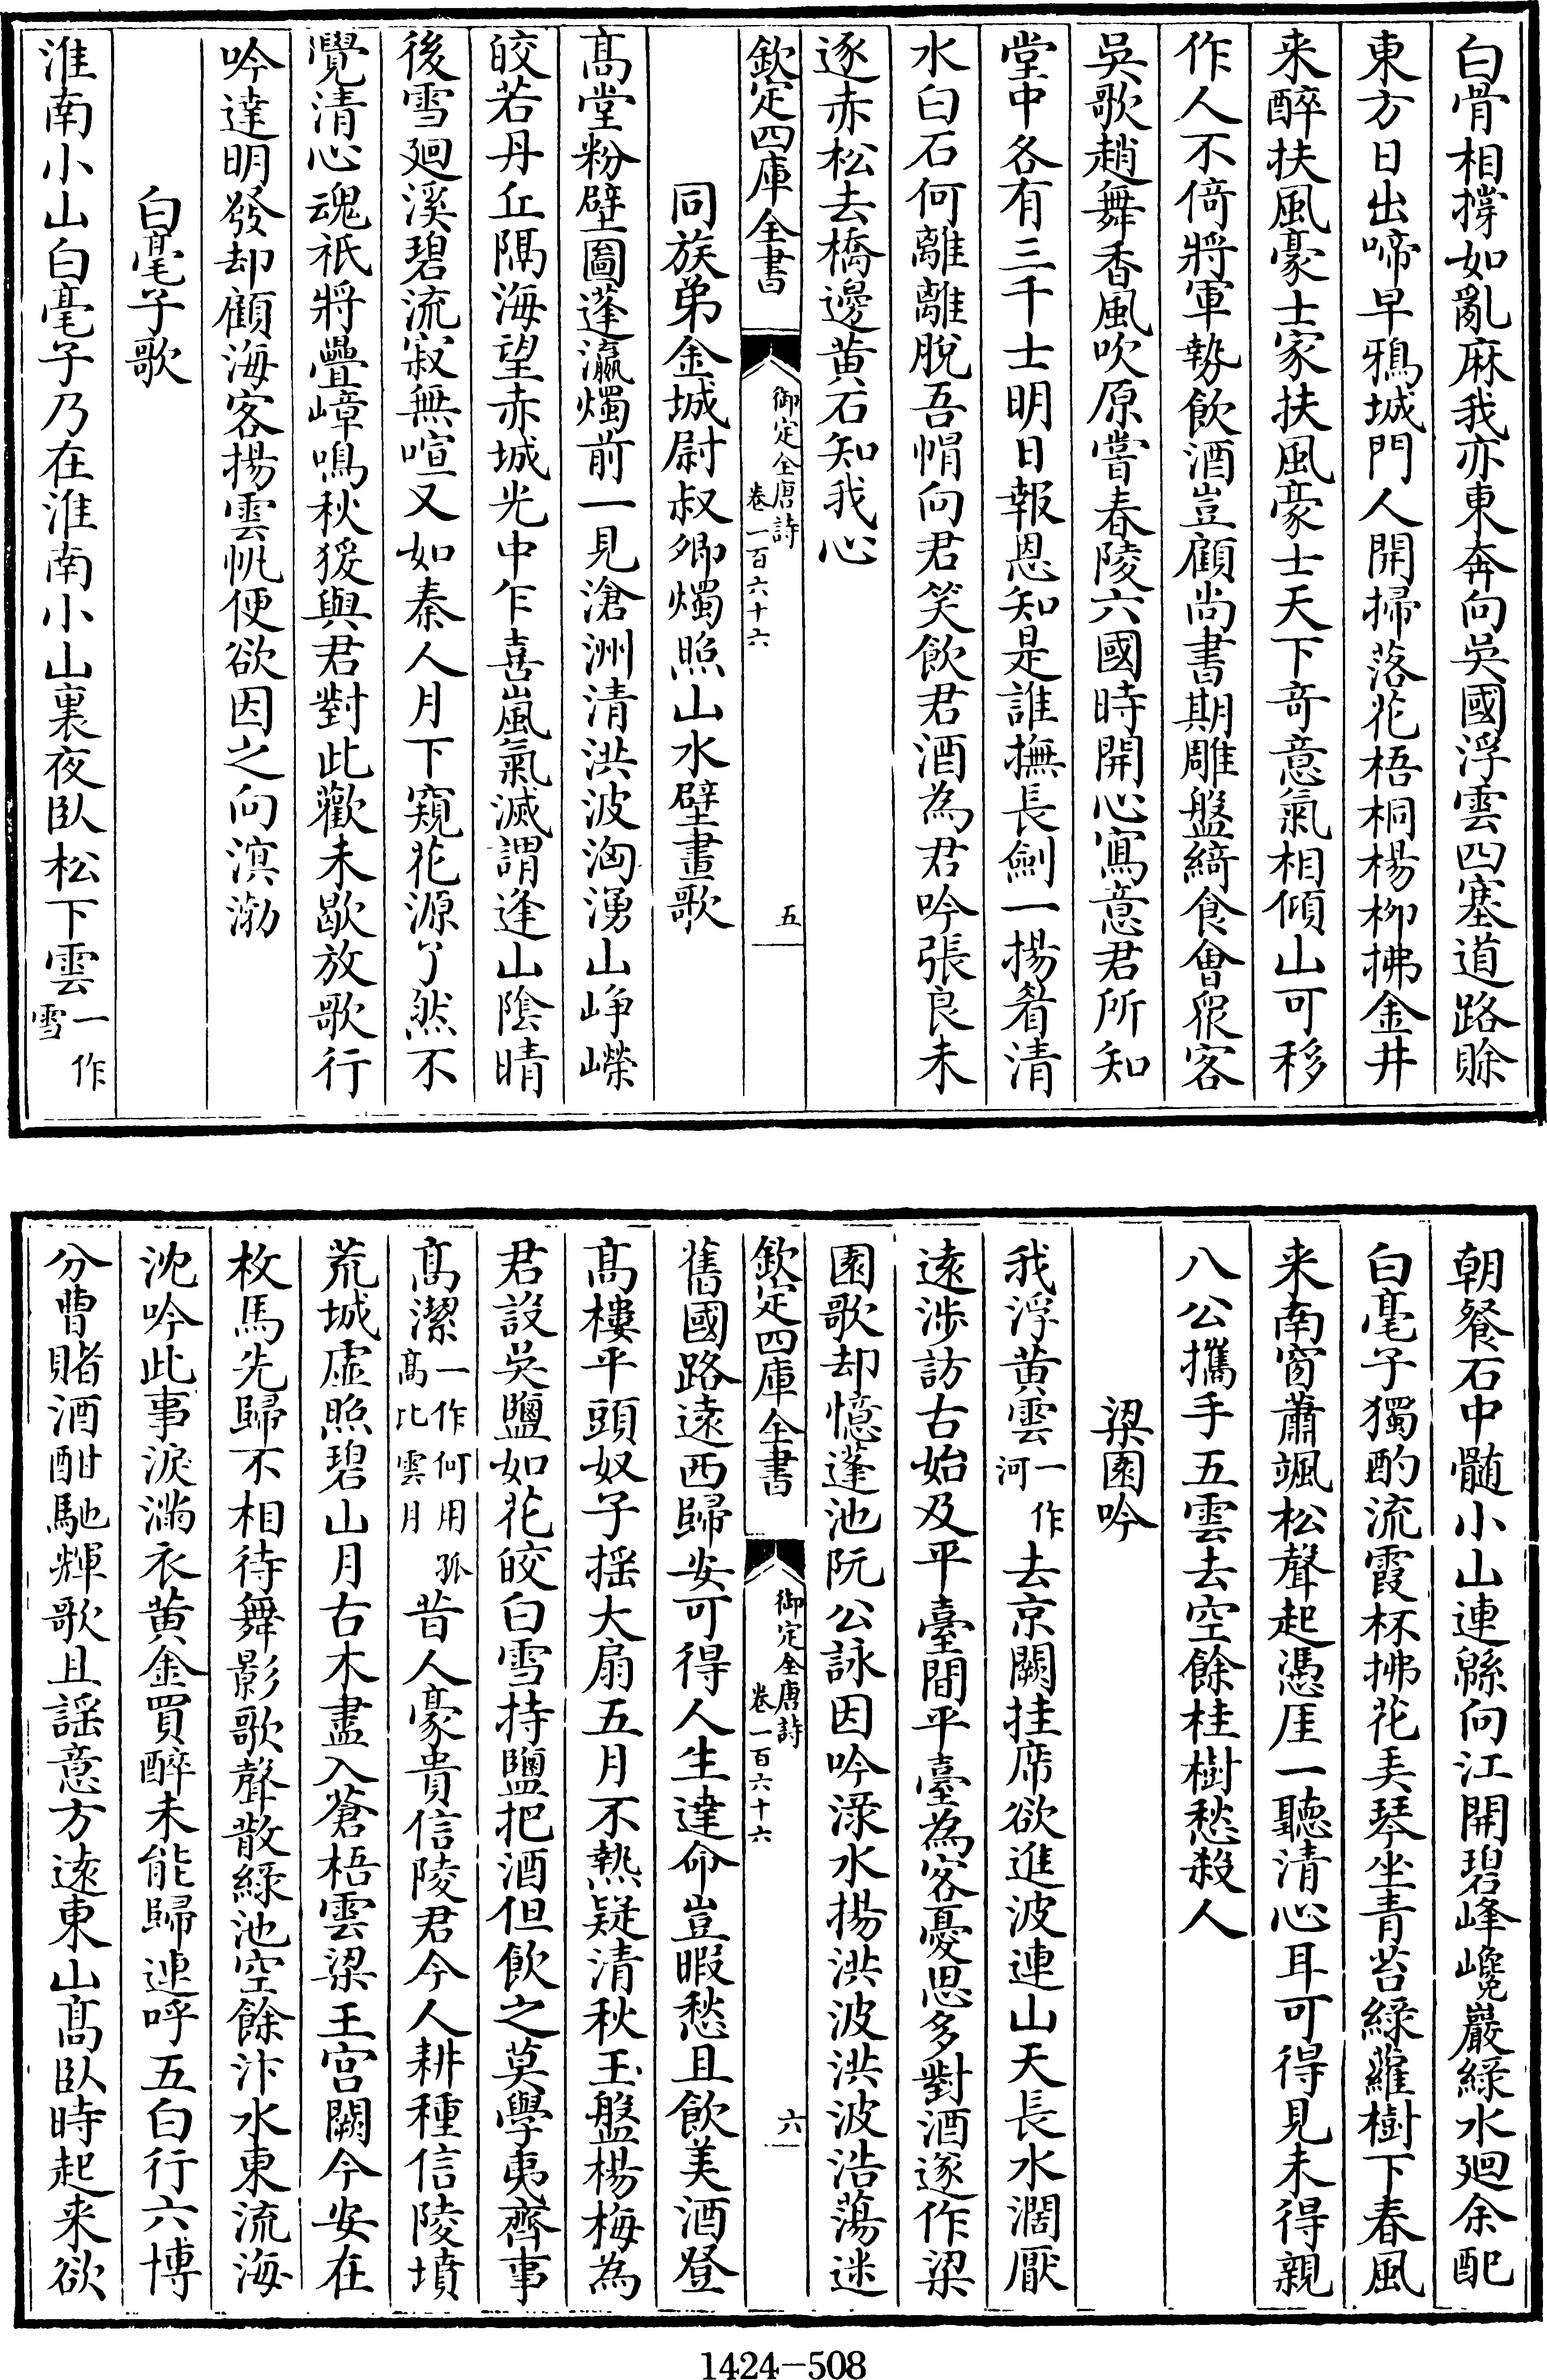 白骨相撐如亂麻我亦東奔向吳國浮雲四塞道路賒
東方日出啼早鴉城門人開掃落花梧桐楊柳拂金井
来醉扶風豪士家扶風豪士天下竒意氣相傾山可移
作人不倚將軍勢飲酒豈顧尚書期雕盤綺食㑹眾客
吳歌趙舞香風吹原嘗春陵六國時開心寫意君所知
堂中各有三千士明日報恩知是誰撫長劍一揚眉清
水白石何離離脫吾帽向君笑飲君酒為君吟張良未
逐赤松去橋邊黄石知我心
欽定四庫全書
御定全唐詩
卷一百六十六
五
同族弟金城尉叔卿燭照山水壁畫歌
髙堂粉壁圖蓬瀛燭前一見滄洲清洪波洶湧山峥嶸
皎若丹丘隔海望赤城光中乍喜嵐氣滅謂逢山陰晴
後雪廻溪碧流寂無喧又如秦人月下窺花源了然不
覺清心魂祇將疊嶂鳴秋猨與君對此歡未歇放歌行
吟達明發却顧海客揚雲帆便欲因之向溟渤
白毫子歌
淮南小山白毫子乃在淮南小山裏夜臥松下雲一作雪
朝餐石中髄小山連緜向江開碧峰巉巖緑水廻余配
白毫子獨酌流霞杯拂花弄琴坐青苔緑蘿樹下春風
来南窗蕭颯松聲起憑厓一聽清心耳可得見未得親
八公攜手五雲去空餘桂樹愁殺人
梁園吟
我浮黄雲一作河去京闕挂席欲進波連山天長水濶厭
遠涉訪古始及平臺間平臺為客憂思多對酒遂作梁
園歌却憶蓬池阮公詠因吟渌水揚洪波洪波浩蕩迷
欽定四庫全書
御定全唐詩
卷一百六十六
六
舊國路遠西歸安可得人生達命豈暇愁且飲美酒登
髙樓平頭奴子揺大扇五月不熱疑清秋玉盤楊梅為
君設吳鹽如花皎白雪持鹽把酒但飲之莫學夷齊事
髙潔一作何用孤髙比雲月昔人豪貴信陵君今人耕種信陵墳
荒城虛照碧山月古木盡入蒼梧雲梁王宫闕今安在
枚馬先歸不相待舞影歌聲散緑池空餘汴水東流海
沈吟此事淚滿衣黄金買醉未能歸連呼五白行六博
分曹賭酒酣馳輝歌且謠意方逺東山髙臥時起来欲
1424-508